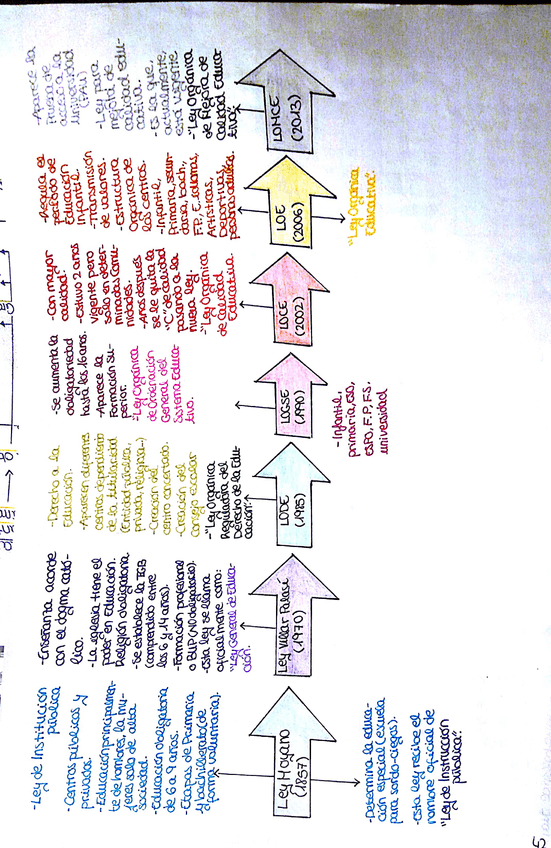 -Ley de Institución
pública
-Centros públicos y
privados.
-Educación principalmen-
te de hombres, la mu-
jeres solo de alta
sociedad.
-Educación obligatoria
de 6 a 9 años.
-Etapas de Primaria
y bachillerato (de
forma voluntaria).
Ley Moyano
(1857)
-Determina la educa-
ción especial (escuela
para sordo-ciegos).
-esta ley recibe el
nombre oficial de
"Ley de Institución
pública".
-Enseñanza acorde
con el dogma cató-
lico.
-La iglesia tiene el
poder en Educación.
Religión obligatoria
-Se establece la EGB
(comprendido entre
los 6 y 14 años).
-Formación profesional
o BUP (NO obligatorio).
-esta ley se llama
oficialmente como:
"Ley General de Educa-
ción.
Ley Villar Palasí
(1970)
-Derecho a la
Educación.
-Aparecen diferentes
centros dependiendo
de la titularidad
(Entidad pública,
privada, religiosa...)
-Creación del
centro concertado.
-Creación del
Consejo escolar
-"Ley Orgánica
Reguladora del
Derecho de la Edu-
cación".
LODE
(1985)
-Se aumenta la
obligatoriedad
hasta los 16 años.
-Aparece la
Formación Su-
perior.
-"Ley Orgánica
de Ordenación
General del
Sistema Educa-
tivo.
LOGSE
(1990)
-Infantil,
primaria, ESO,
F.P, F.S,
universidad
-Con mayor
calidad.
-Estuvo 2 años
vigente pero
solo en deter-
minadas Comu-
nidades.
-Años después
se le quita la
"C" de calidad
pasando a la
nueva ley.
-"Ley Orgánica
de Calidad
Educativa.
LOCE
(2002)
-Regula el
período de
Educación
Infantil.
-Transmisión
de valores.
-Estructura
Orgánica de
los centros.
-Infantil,
Primaria, secun-
daria, bach,
F.P, E. idiomas,
Artísticas,
Deportivas,
personas adultas.
LOE
(2006)
"Ley Orgánica
Educativa".
-Aparece la
Prueba de
acceso a la
universidad
(PAU)
-Ley para
mejora de
calidad edu-
cativa.
-Es la que,
actualmente,
está vigente
-"Ley Orgánica
de Mejora de
Calidad Educa-
tiva".
LOMCE
(2013)
5